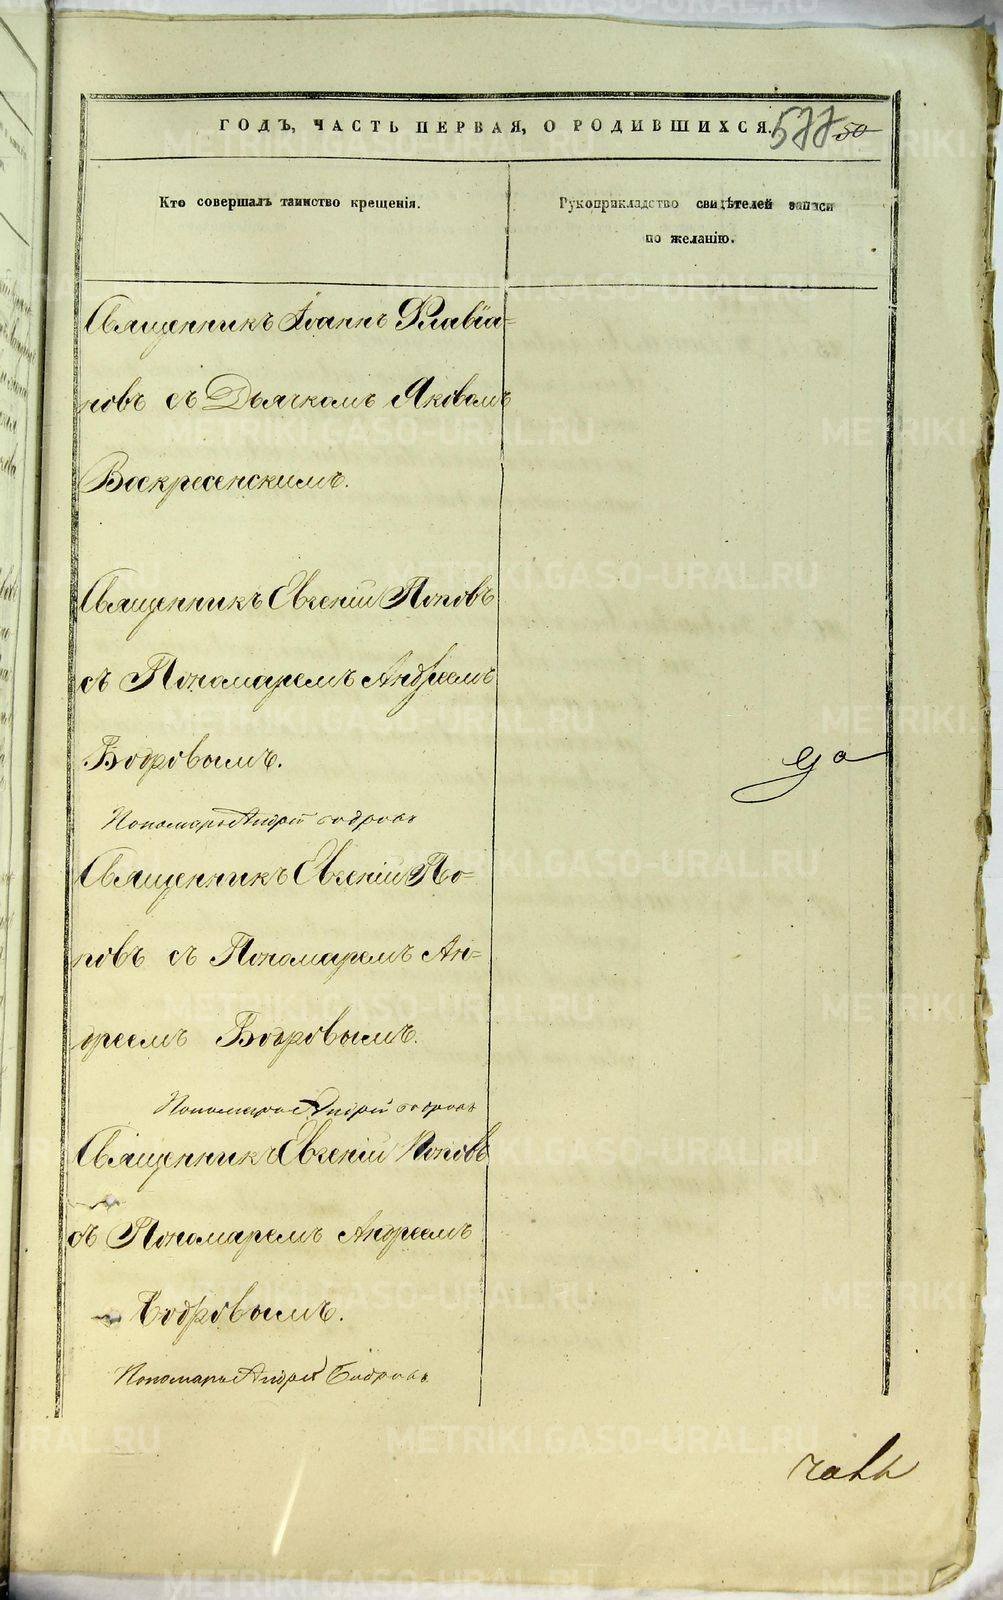 ГОДЪ, ЧАСТЬ ПЕРВАЯ, О РОДИВШИХСЯ. 577 50
Кто совершалъ таинство крещенія.
Рукоприкладство свидѣтелей записи
по желанію.
Священникъ Іоаннъ Флавіа-
новъ съ Дьячкомъ Яковомъ
Воскресенскимъ.
Священникъ Евгеній Поповъ
съ Пономаремъ Андреемъ
Бодровымъ.
Пономарь Андрей Бодровъ
да
Священникъ Евгеній По-
повъ съ Пономаремъ Ан-
дреемъ Бодровымъ.
Пономарь Андрей Бодровъ
Священникъ Евгеній Поповъ
съ Пономаремъ Андреемъ
Бодровымъ.
Пономарь Андрей Бодровъ
METRIKI.GASO-URAL.RU